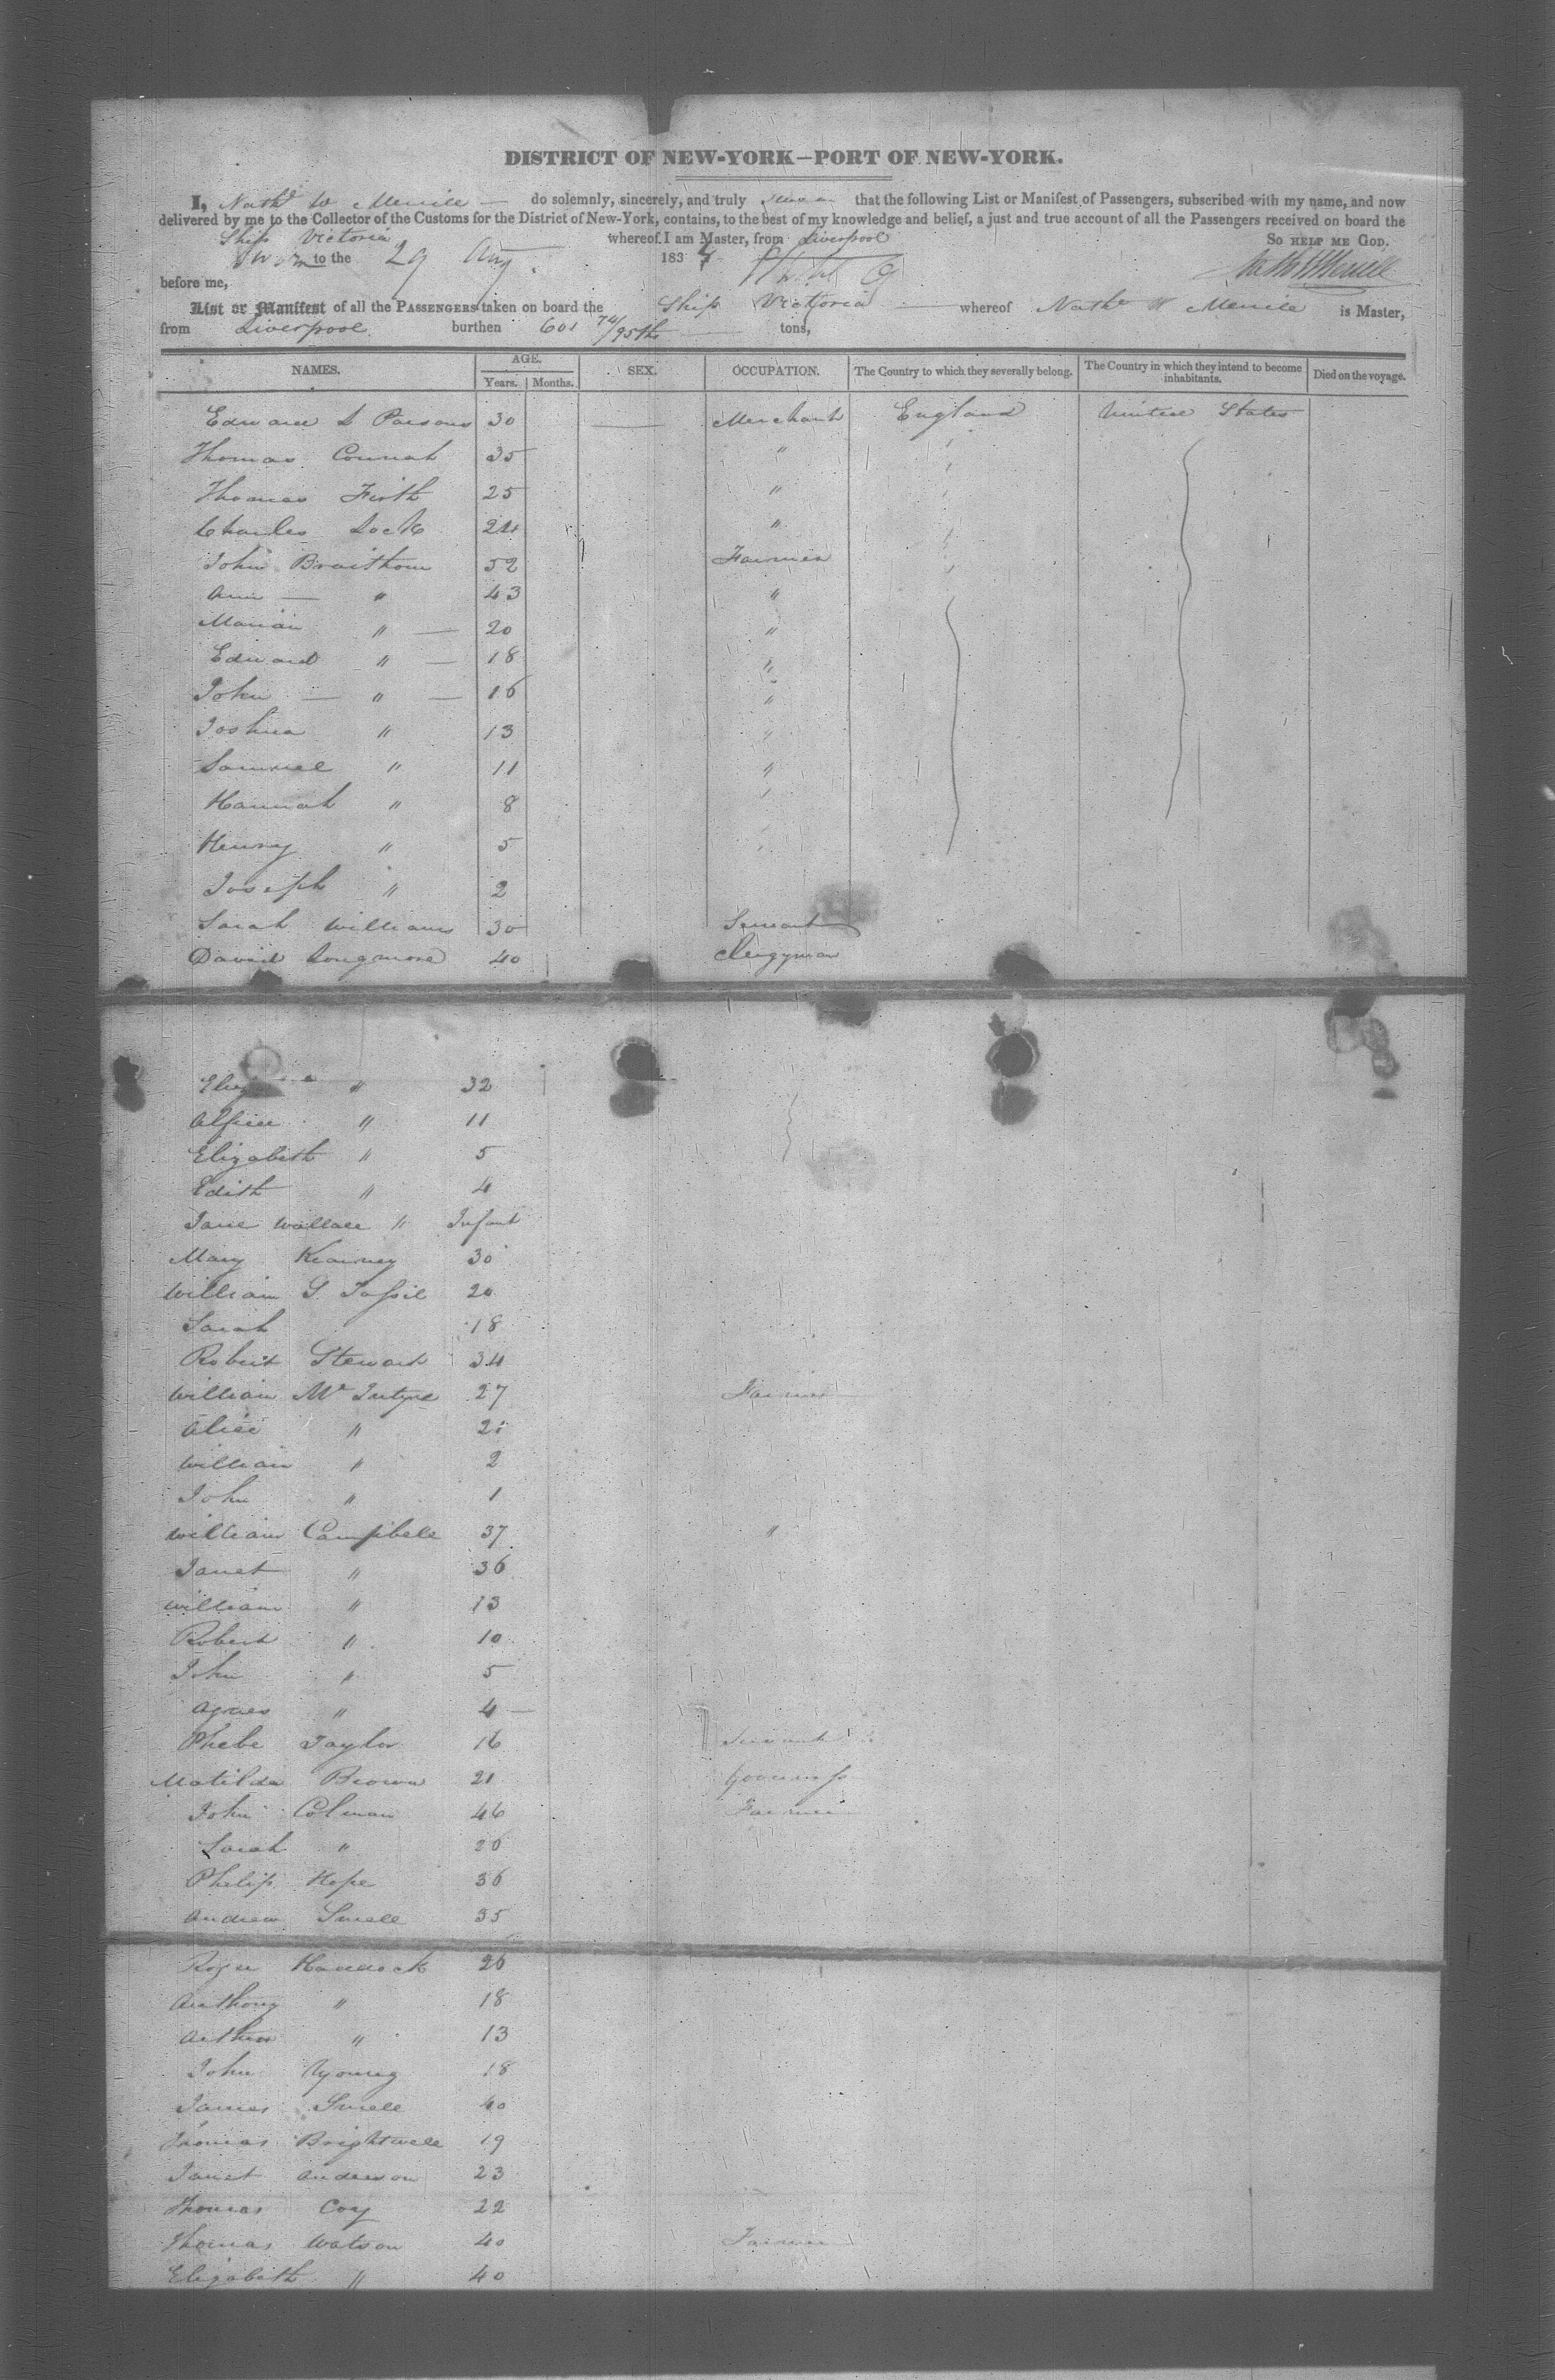 DISTRICT OF NEW-YORK—PORT OF NEW-YORK.
I, Nathl W Merrill do solemnly, sincerely, and truly swear that the following List or Manifest of Passengers, subscribed with my name, and now
delivered by me to the Collector of the Customs for the District of New-York, contains, to the best of my knowledge and belief, a just and true account of all the Passengers received on board the
Ship Victoria whereof I am Master, from Liverpool So HELP ME GOD.
Sworn to the 29 Aug. 183
before me,
List or Manifest of all the PASSENGERS taken on board the Ship Victoria whereof Nathl W Merrill is Master,
from Liverpool burthen 601 74/95ths tons,
NAMES. AGE. Years. Months. SEX. OCCUPATION. The Country to which they severally belong. The Country in which they intend to become inhabitants. Died on the voyage.
Edward S Parsons 30 Merchant England United States
Thomas Connah 35 "
Thomas Firth 25 "
Charles Lock 24 "
John 52 Farmer
Ann " 43 "
Marian " 20 "
Edward " 18 "
John " 16 "
Joshua " 13 "
Samuel " 11 "
Hannah " 8 "
Henry " 5 "
Joseph " 2
Sarah Williams 30 Servant
David Longmore 40 Clergyman
" 32
Alfred " 11
Elizabeth " 5
Edith " 4
Jane Wallace " Infant
Mary Kearney 30
William G 20
Sarah 18
Robert Stewart 34
William McIntyre 27 Farmer
Alice " 21
William " 2
John " 1
William Campbell 37 "
Janet " 36
William " 13
Robert " 10
John " 5
Agnes " 4
Phebe Taylor 16 Servant
Matilda Brown 21 Governess
John Colman 46 Farmer
Sarah " 26
Philip Hope 36
Andrew Smell 35
Roger Haddock 26
Anthony " 18
Arthur " 13
John Young 18
James Smell 40
Thomas Brightwell 19
Janet Anderson 23
Thomas Coy 22
Thomas Watson 40 Farmer
Elizabeth " 40